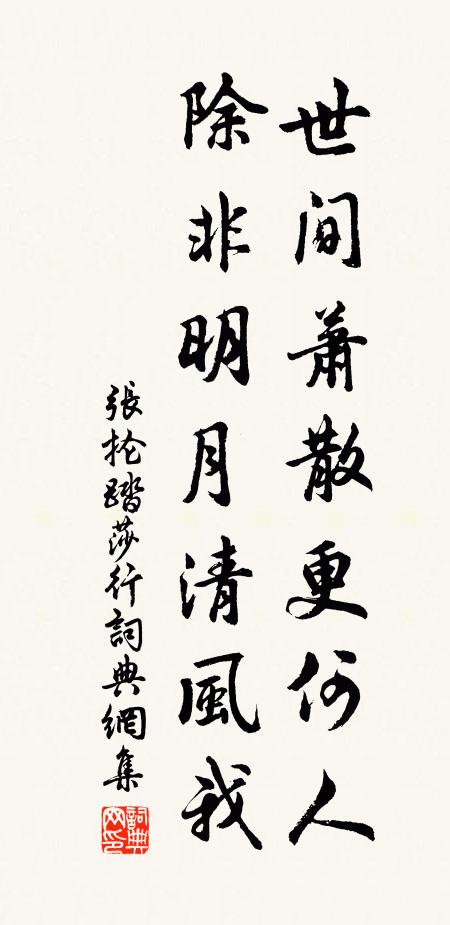 世間蕭散更何人
除非明月清風我
張抡踏莎行詞典網集
詞典
网印